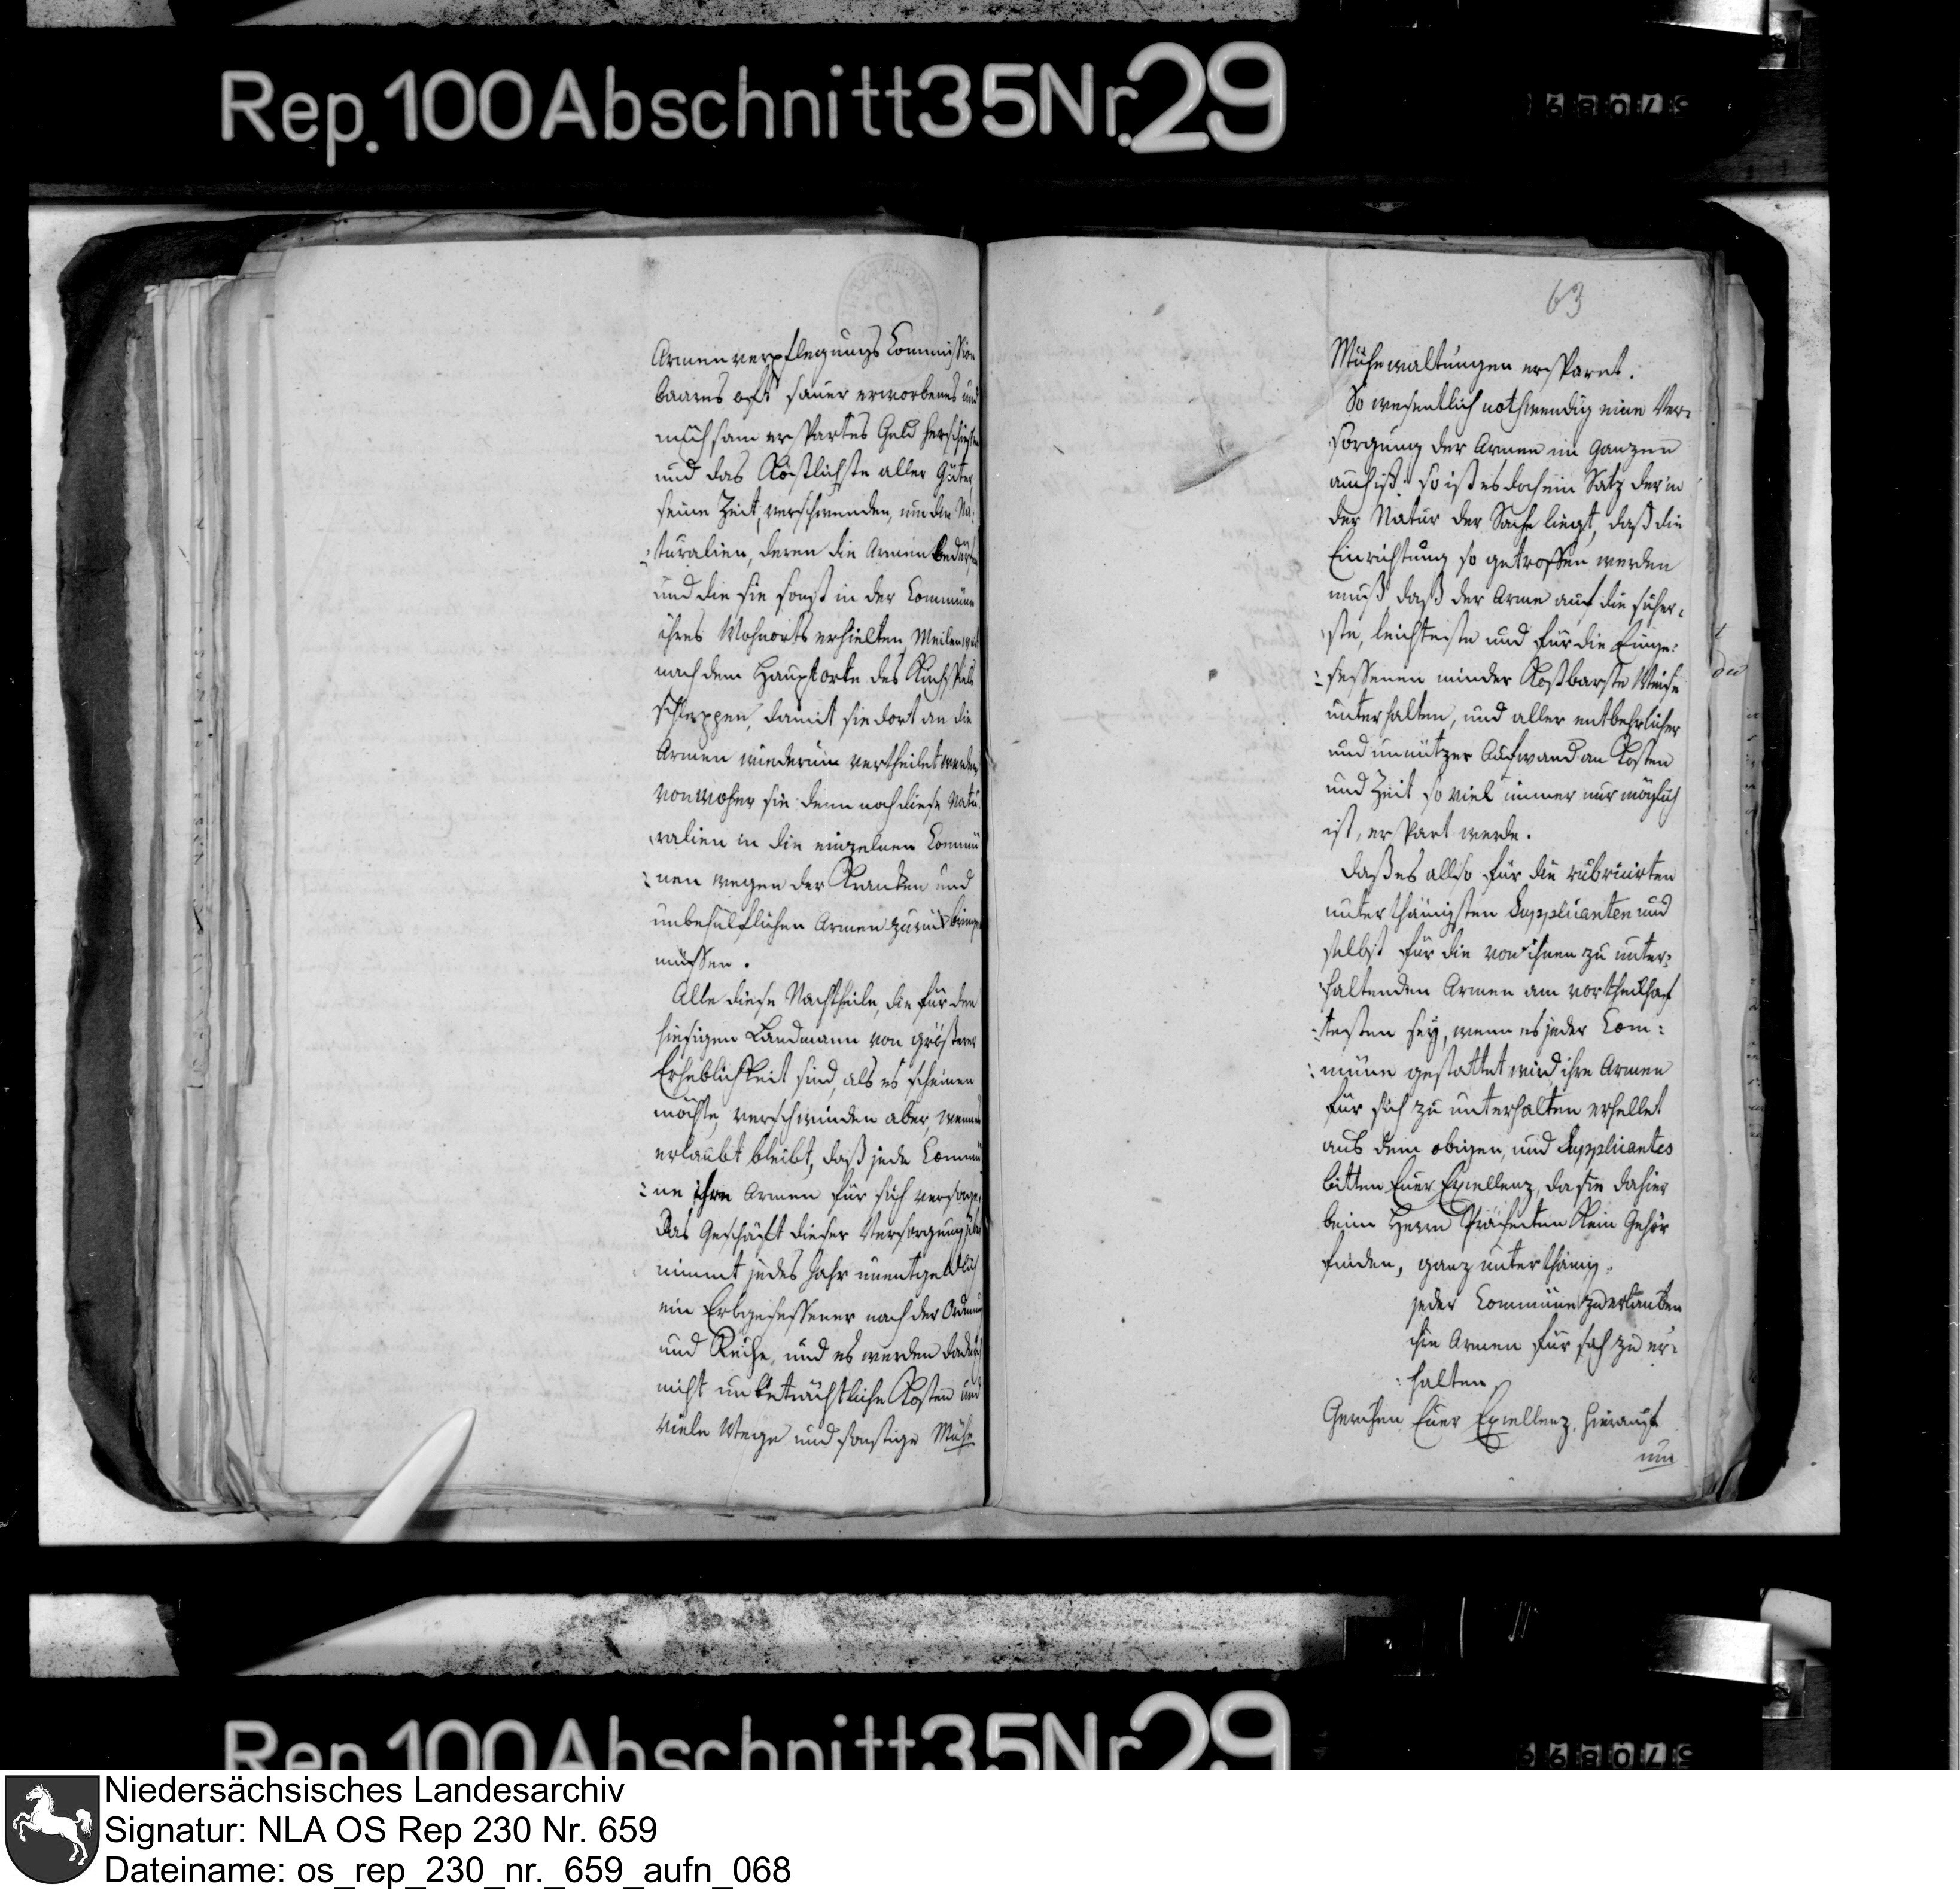 Rep. 100 Abschnitt 35 Nr. 29
Armenverpflegungs Commission
baares oft sauer erworbenes und
mühsam erspartes Geld herschießen
und das Köstlichste aller Güter,
seine Zeit, verschwenden, um die Na-
turalien, deren die Armen bedürfen
und die sie sonst in der Commüne
ihres Wohnorts erhielten, Meilenweit
nach dem Hauptorte des Kirchspiels
schleppen, damit sie dort an die
Armen wiederum vertheilet werden
von woher sie denn noch diese Natu
ralien in die einzelnen Commü
:nen wegen der Kranken und
unbehülflichen Armen zurück bringen
müssen.
Alle diese Nachtheile, die für den
hiesigen Landmann von größerer
Erheblichkeit sind, als es scheinen
möchte, verschwinden aber, wenn
erlaubt bleibt, daß jede Commü
:ne ihre Armen für sich versorge.
Das Geschäft dieser Versorgung über
nimmt jedes Jahr unentgeldlich
ein Erbgesessener nach der Ordnung
und Reihe, und es werden dadurch
nicht unbeträchtliche Kosten und
viele Wege und sonstige Mühe
63
Mühewaltungen erspart.
So wesentlich nothwendig eine Ver-
sorgung der Armen im Ganzen
auch ist: so ist es doch ein Satz der in
der Natur der Sache liegt, daß die
Einrichtung so getroffen werden
muß daß der Arme auf die sicher-
ste, leichteste und für die Einge-
:sessenen minder kostbarste Weise
unterhalten, und aller entbehrlicher
und unnützer Aufwand an Kosten
und Zeit so viel immer nur möglich
ist, erspart werde.
Daß es allso für die rubricirten
unterthänigsten Supplicanten und
selbst für die von ihnen zu unter-
haltenden Armen am vortheilhaf
:testen sey, wenn es jeder Com:
:müne gestattet wird ihre Armen
für sich zu unterhalten erhellet
aus dem obigen, und Supplicantes
bitten Euer Excellenz, da sie dahier
beim Herrn Präfecten kein Gehör
finden, ganz unterthänig:
jeder Commüne zu erlauben
ihre Armen für sich zu er-
:halten
Geruhen Euer Excellenz, hierauf
um
Rep. 100 Abschnitt 35 Nr. 29
Niedersächsisches Landesarchiv
Signatur: NLA OS Rep 230 Nr. 659
Dateiname: os_rep_230_nr._659_aufn_068